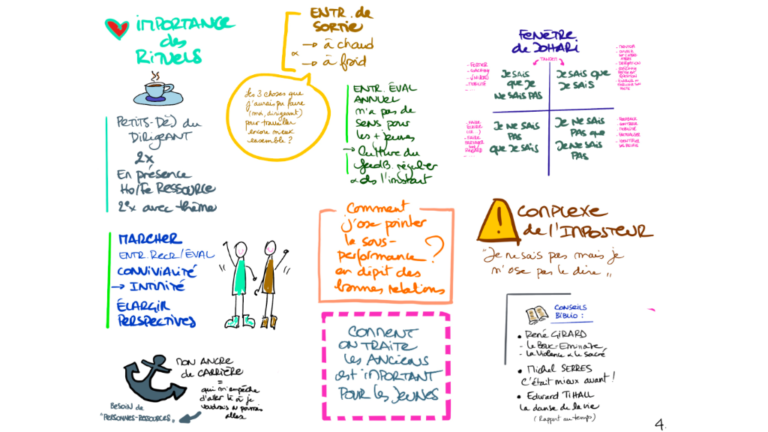 IMPORTANCE
des
RITUELS
PETITS-DÉJ du
DIRIGEANT
2x
En présence
Ho/Fe RESSOURCE
2x avec thème
MARCHER
ENTR. RECR/EVAL
CONVIVIALITÉ
→ INTIMITÉ
ÉLARGIR
PERSPECTIVES
MON ANCRE
DE CARRIÈRE
=
qui m'empêche
d'aller là où je
voudrais
aller
BESOIN de
"PERSONNES-RESSOURCES"
ENTR. de
SORTIE
→ à chaud
→ à froid
les 3 choses que
j'aurais pu faire
(moi, dirigeant)
pour travailler
encore mieux
ensemble ?
ENTR. EVAL
ANNUEL
n'a pas de
sens pour
les + jeunes
→ Culture du
feedB. régulier
ds l'instant
Comment
j'ose pointer
la sous-
performance
en dépit des
bonnes relations
?
COMMENT
ON TRAITE
les ANCIENS
est IMPORTANT
POUR les JEUNES
FENÊTRE
de JOHARI
JE SAIS
que JE
NE SAIS PAS
JE SAIS QUE
JE SAIS
JE NE SAIS
PAS
QUE JE SAIS
JE NE SAIS
PAS que
JE NE SAIS
PAS
!
COMPLEXE
de L'IMPOSTEUR
"Je ne sais pas mais je
n'ose pas le dire"
CONSEILS
BIBLIO :
• René GIRARD
- Le Bouc-Émissaire
- La Violence & le Sacré
• Michel SERRES
C'était mieux avant !
• Edward T. HALL
La danse de la vie
(Rapport au temps)
4.